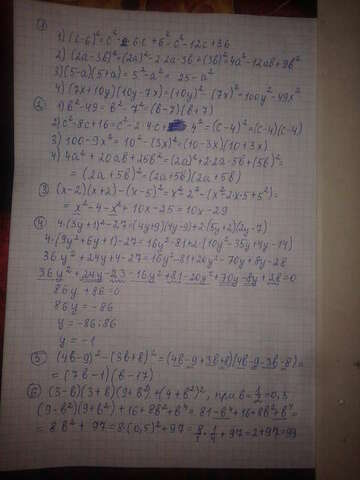 ①
1) (c-6)² = c² - 6c + 6² = c² - 12c + 36
2) (2a-3b)² = (2a)² - 2·2a·3b + (3b)² = 4a² - 12ab + 9b²
3) (5-a)(5+a) = 5² - a² = 25 - a²
4) (7x+10y)(10y-7x) = (10y)² - (7x)² = 100y² - 49x²
② 1) b² - 49 = b² - 7² = (b-7)(b+7)
2) c² - 8c + 16 = c² - 2·4c + 4² = (c-4)² = (c-4)(c-4)
3) 100 - 9x² = 10² - (3x)² = (10-3x)(10+3x)
4) 4a² + 20ab + 25b² = (2a)² + 2·2a·5b + (5b)² =
= (2a+5b)² = (2a+5b)(2a+5b)
③ (x-2)(x+2) - (x-5)² = x² - 2² - (x² - 2·x·5 + 5²) =
= x² - 4 - x² + 10x - 25 = 10x - 29
④ 4·(3y+1)² - 27 = (4y+9)(4y-9) + 2·(5y+2)(2y-7)
4·(9y² + 6y + 1) - 27 = 16y² - 81 + 2·(10y² - 35y + 4y - 14)
36y² + 24y + 4 - 27 = 16y² - 81 + 20y² - 70y + 8y - 28
36y² + 24y - 23 - 16y² + 81 - 20y² + 70y - 8y + 28 = 0
86y + 86 = 0
86y = -86
y = -86:86
y = -1
⑤ (4b-9)² - (3b+8)² = (4b-9+3b+8)(4b-9-3b-8) =
= (7b-1)(b-17)
⑥ (3-b)(3+b)(9+b²) + (4+b²)², при b = 1/2 = 0,5
(9-b²)(9+b²) + 16 + 8b² + b⁴ = 81 - b⁴ + 16 + 8b² + b⁴ =
= 8b² + 97 = 8·(0,5)² + 97 = 8/1 · 1/4 + 97 = 2 + 97 = 99